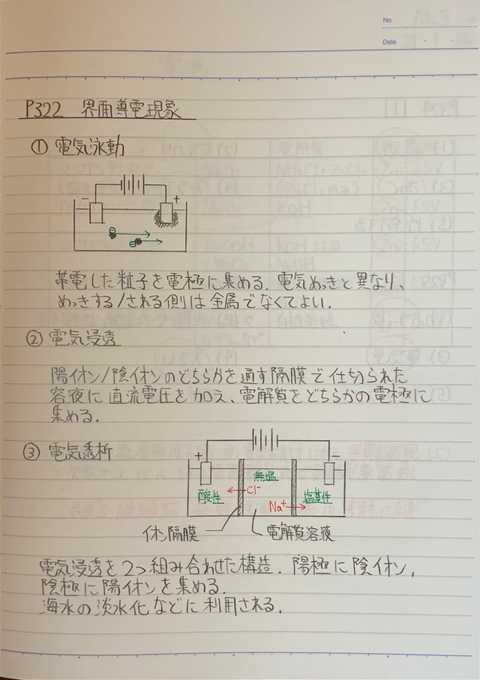 No
Date
P322 界面導電現象
① 電気泳動
− +
帯電した粒子を電極に集める. 電気めっきと異なり,
めっきする/される側は金属でなくてよい.
② 電気浸透
陽イオン/陰イオンのどちらかを通す隔膜で仕切られた
容液に直流電圧を加え、電解質をどちらかの電極に
集める.
③ 電気透析
+ −
無塩
酸性 Cl⁻ 塩基性
Na⁺
イオン隔膜 電解質溶液
電気浸透を2つ組み合わせた構造. 陽極に陰イオン,
陰極に陽イオンを集める.
海水の淡水化などに利用される.